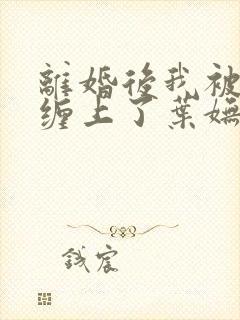 離婚後我被
缠上了葉嫵
錢宸